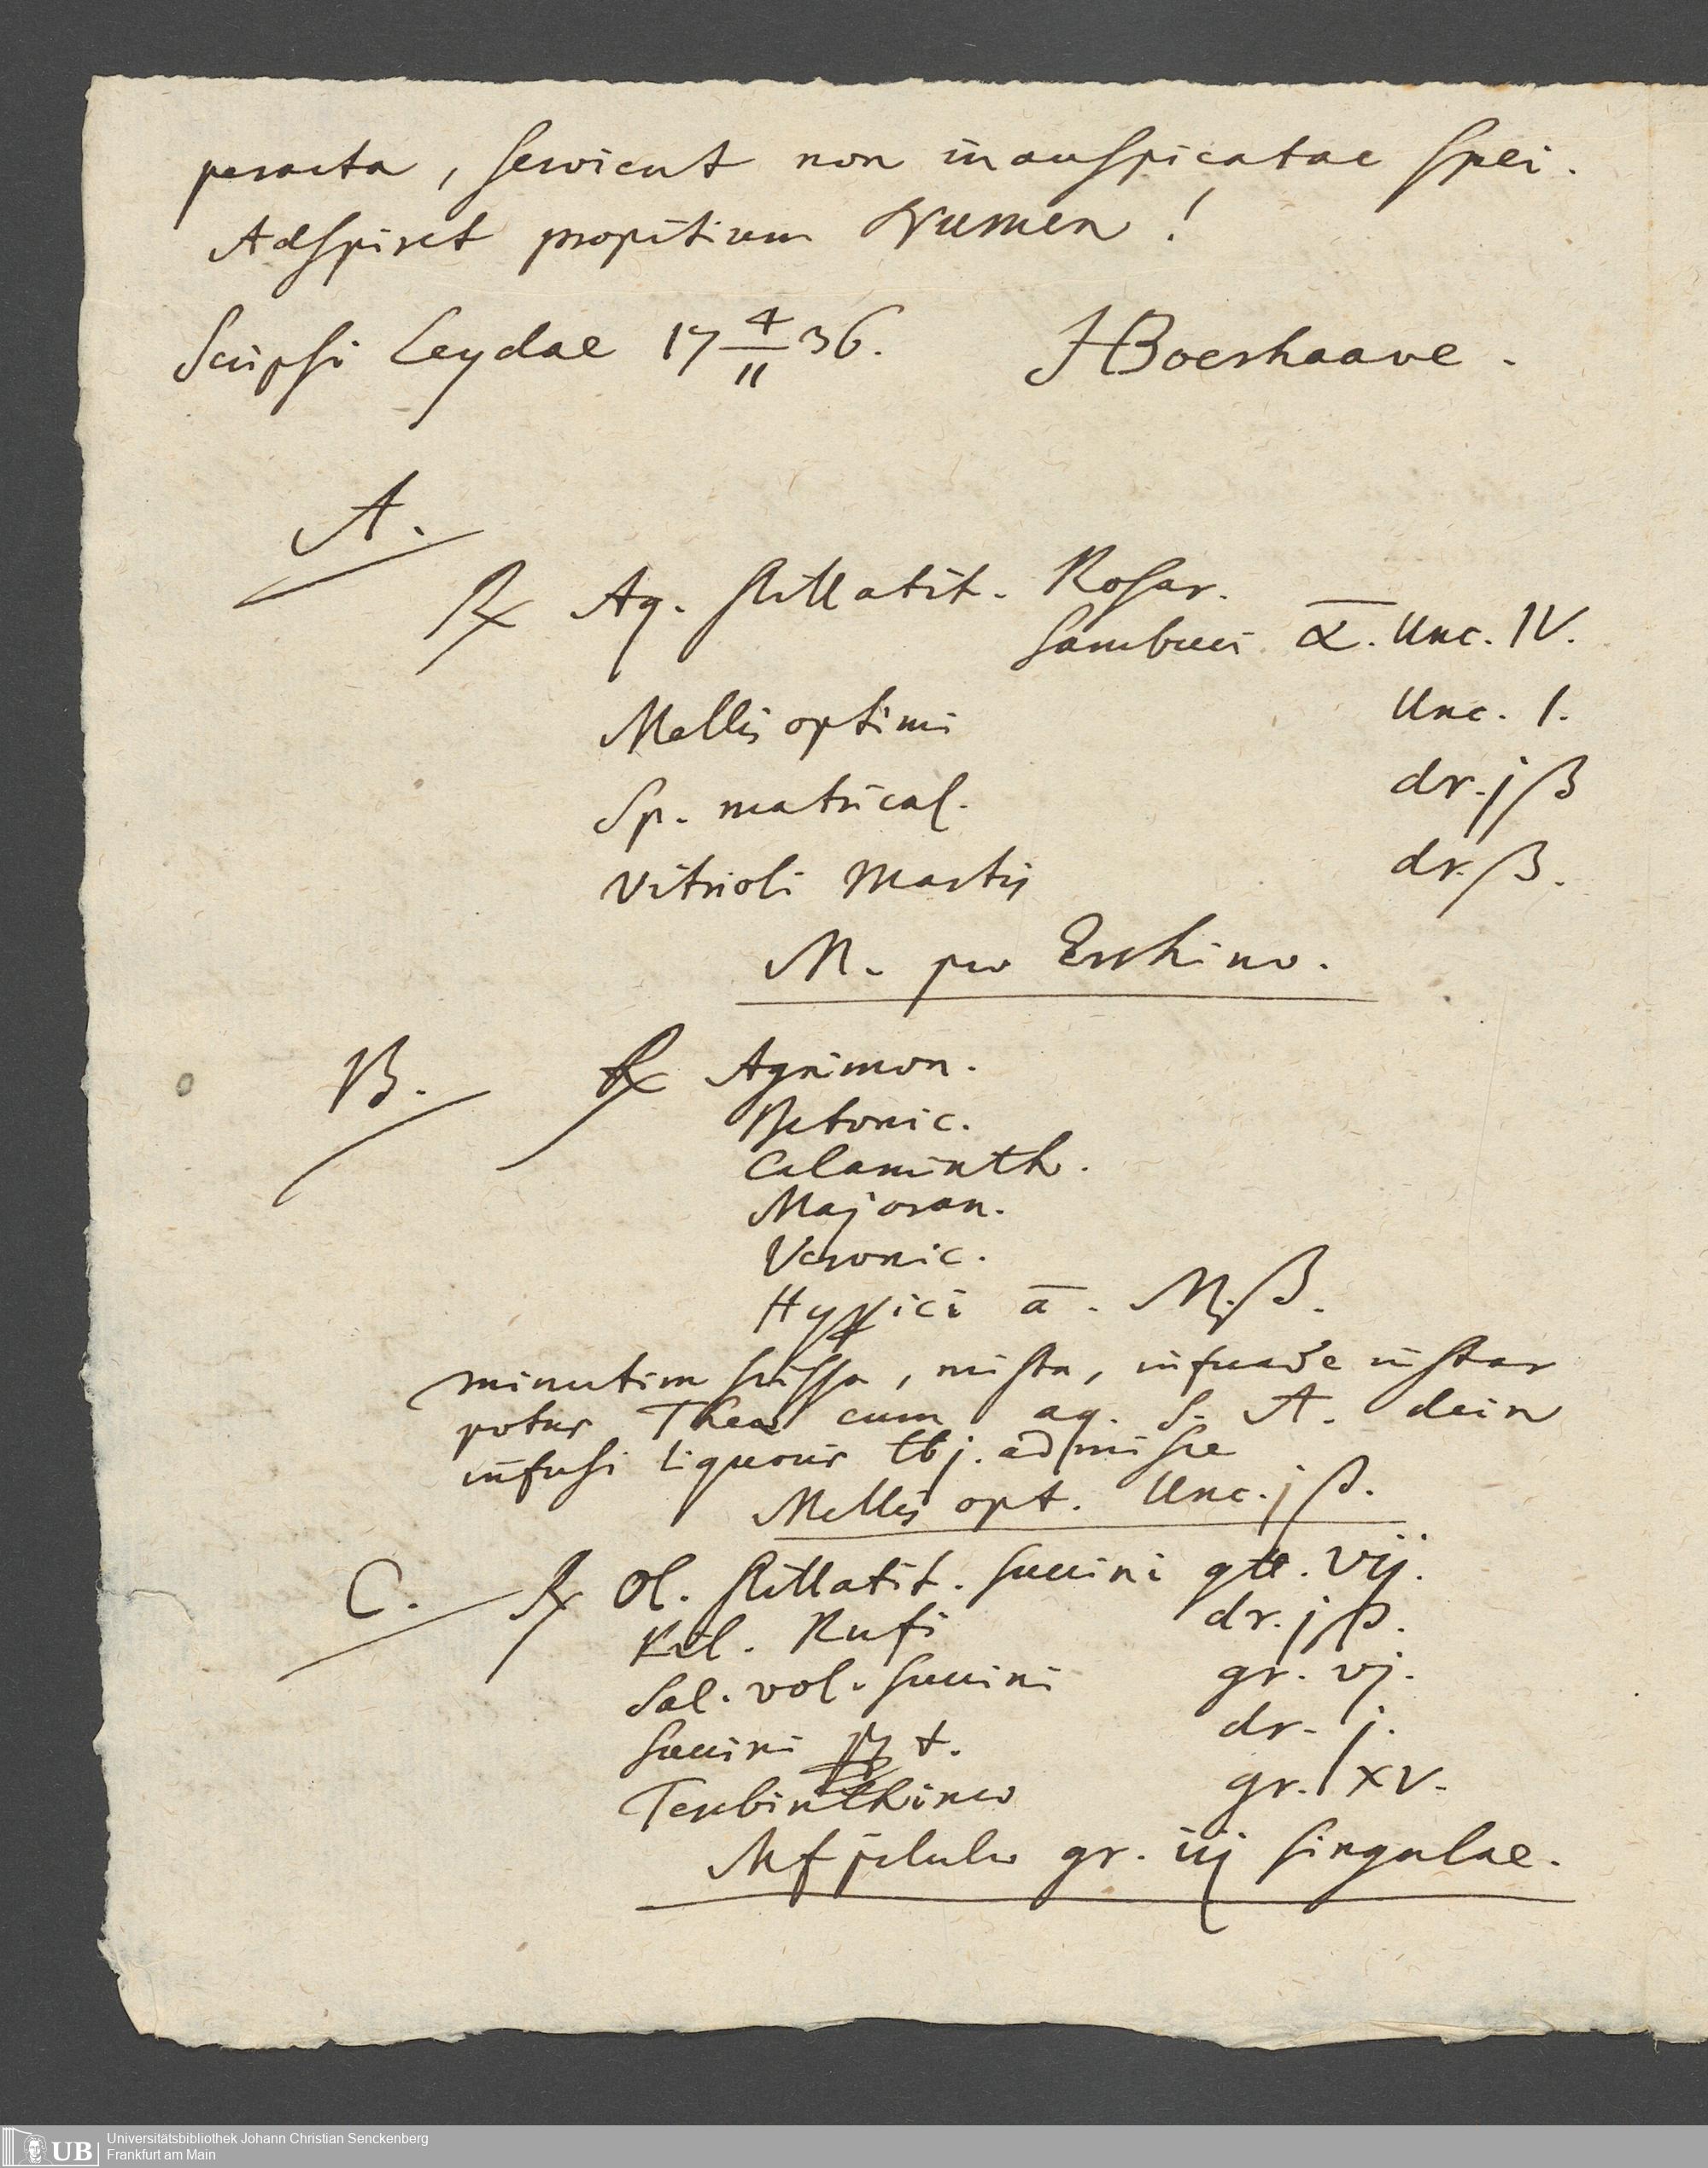 peracta, servient non inauspicatae spei.
Adspiret propitium Numen!
Scripsi Leydae 17 4/11 36. HBoerhaave.
A.
℞ Aq. stillatit. Rosar.
Sambuci ā. Unc. IV.
Mellis optimi Unc. I.
Sp. matrical. dr. jß
Vitrioli Martis dr. ß.
M. pro Errhino.
B. ℞ Agrimon.
Betonic.
Calaminth.
Majoran.
Veronic.
Hyperici ā. M. ß.
minutim scissa, mista, infunde instar
potus Theae cum aq. S. A. dein
infusi liquoris lbj. admisce
Mellis opt. Unc. jß.
C. ℞ Ol. stillatit. succini gtt. vij.
Pil. Rufi dr. jß.
Sal. vol. succini gr. vj.
Succini ppt. dr. j.
Terebinthinae gr. xv.
Mf pilulae gr. iij singulae.
UB Universitätsbibliothek Johann Christian Senckenberg
Frankfurt am Main